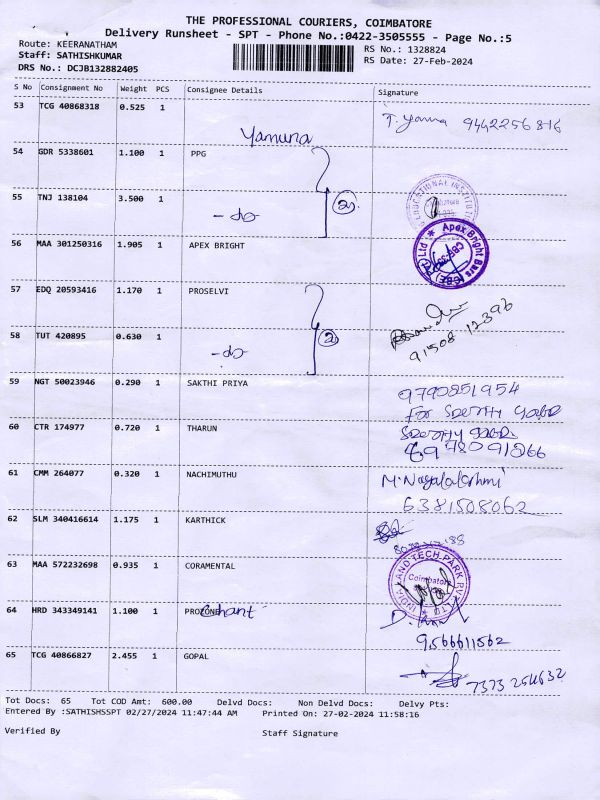 THE PROFESSIONAL COURIERS, COIMBATORE
Delivery Runsheet - SPT - Phone No.:0422-3505555 - Page No.:5
Route: KEERANATHAM
Staff: SATHISHKUMAR
DRS No.: DCJB132882405
RS No.: 1328824
RS Date: 27-Feb-2024
S No Consignment No Weight PCS Consignee Details Signature
53 TCG 40868318 0.525 1
Yamuna
9442256816
54 GDR 5338601 1.100 1 PPG
55 TNJ 138104 3.500 1
-do-
2
EDUCATIONAL INSTITUTIONS
56 MAA 301250316 1.905 1 APEX BRIGHT
Apex Bright Bars (CBE) (P) Ltd
57 EDQ 20593416 1.170 1 PROSELVI
91508 12396
58 TUT 420895 0.630 1
-do-
2
59 NGT 50023946 0.290 1 SAKTHI PRIYA
9790851954
60 CTR 174977 0.720 1 THARUN
61 CMM 264077 0.320 1 NACHIMUTHU
M. Nagalakshmi
6381508062
62 SLM 340416614 1.175 1 KARTHICK
63 MAA 572232698 0.935 1 CORAMENTAL
INDIA LAND TECH PARK PVT LTD
Coimbatore
64 HRD 343349141 1.100 1 PROZONE
9566611562
65 TCG 40866827 2.455 1 GOPAL
7373 254632
Tot Docs: 65 Tot COD Amt: 600.00 Delvd Docs: Non Delvd Docs: Delvy Pts:
Entered By :SATHISHSSPT 02/27/2024 11:47:44 AM Printed On: 27-02-2024 11:58:16
Verified By Staff Signature